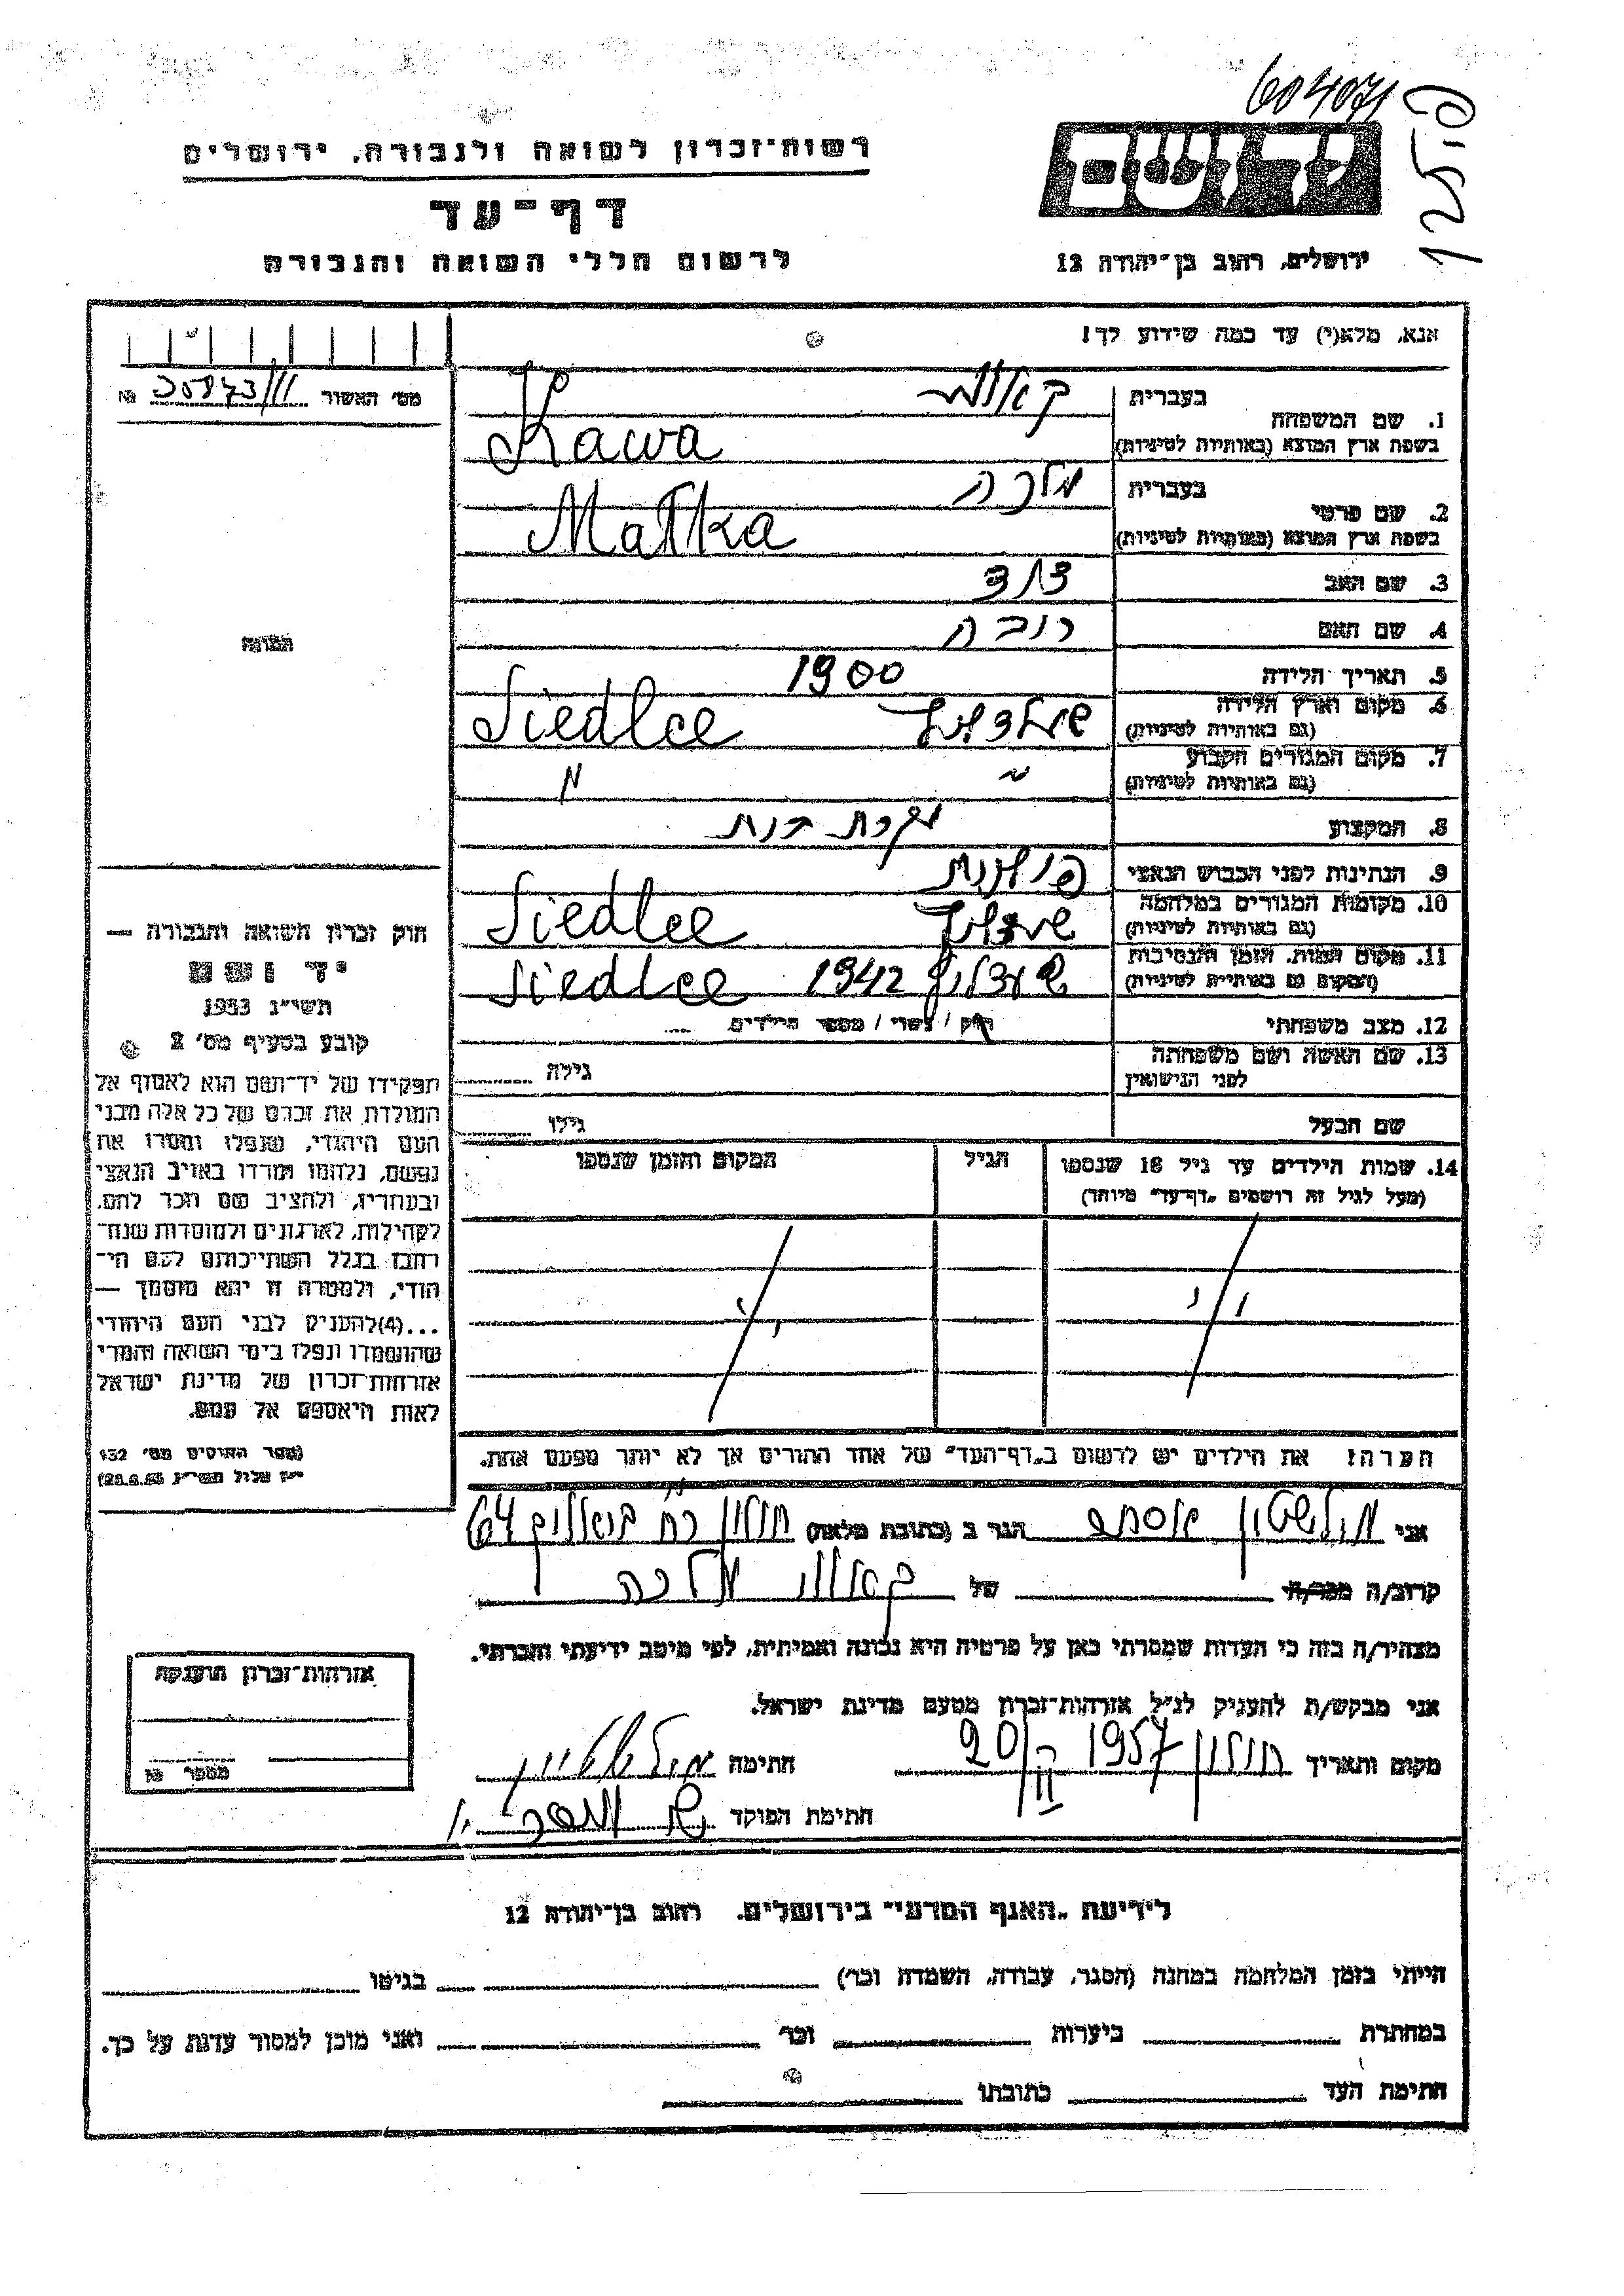 604071
פולין
רשות־זכרון לשואה ולגבורה, ירושלים
דף־עד
לרשום חללי השואה והגבורה
יד ושם
ירושלים, רחוב בן־יהודה 12
אנא, מלא(י) עד כמה שידוע לך!
מס׳ האשור 30873/11 №
בעברית
1. שם המשפחה
בשפת ארץ המוצא (באותיות לטיניות) Kawa
בעברית מלכה
2. שם פרטי
בשפת ארץ המוצא (באותיות לטיניות) Małka
3. שם האב דוד
4. שם האם רובה
5. תאריך הלידה 1900
6. מקום וארץ הלידה
(גם באותיות לטיניות) שעדליץ Siedlce
7. מקום המגורים הקבוע
(גם באותיות לטיניות) " "
8. המקצוע עקרת בית
9. הנתינות לפני הכבוש הנאצי פולנית
10. מקומות המגורים במלחמה
(גם באותיות לטיניות) שעדליץ Siedlce
11. מקום המות, הזמן והנסיבות
(המקום גם באותיות לטיניות) שעדליץ 1942 Siedlce
12. מצב משפחתי רוק / נשוי / מספר הילדים
13. שם האשה ושם משפחתה
לפני הנישואין גילה
שם הבעל גילו
14. שמות הילדים עד גיל 18 שנספו הגיל המקום והזמן שנספו
(מעל לגיל זה רושמים „דף־עד״ מיוחד)
הערה: את הילדים יש לרשום ב„דף־העד״ של אחד ההורים אך לא יותר מפעם אחת.
התמונה
חוק זכרון השואה והגבורה —
יד ושם
תשי״ג 1953
קובע בסעיף מס׳ 2
תפקידו של יד־ושם הוא לאסוף אל
המולדת את זכרם של כל אלה מבני
העם היהודי, שנפלו ומסרו את
נפשם, נלחמו ומרדו באויב הנאצי
ובעוזריו, ולהציב שם וזכר להם,
לקהילות, לארגונים ולמוסדות שנח־
רבו בגלל השתייכותם לעם הי־
הודי, ולמטרה זו יהא מוסמך —
...(4)להעניק לבני העם היהודי
שהושמדו ונפלו בימי השואה והמרי
אזרחות־זכרון של מדינת ישראל
לאות היאספם אל עמם.
(ספר החוקים מס׳ 132
י״ז אלול תשי״ג 28.8.53)
אני אסתר הגר ב (כתובת מלאה) חולון 64
קרוב/ה מכר/ה של מלכה
מצהיר/ה בזה כי העדות שמסרתי כאן על פרטיה היא נכונה ואמיתית, לפי מיטב ידיעתי והכרתי.
אני מבקש/ת להעניק לנ״ל אזרחות־זכרון מטעם מדינת ישראל.
מקום ותאריך חולון 1957 20/ חתימה
חתימת הפוקד
אזרחות־זכרון הוענקה
מספר №
לידיעת „האגף המדעי״ בירושלים. רחוב בן־יהודה 12
הייתי בזמן המלחמה במחנה (הסגר, עבודה, השמדה וכו׳) בגיטו
במחתרת ביערות וכו׳ ואני מוכן למסור עדות על כך.
חתימת העד כתובתו